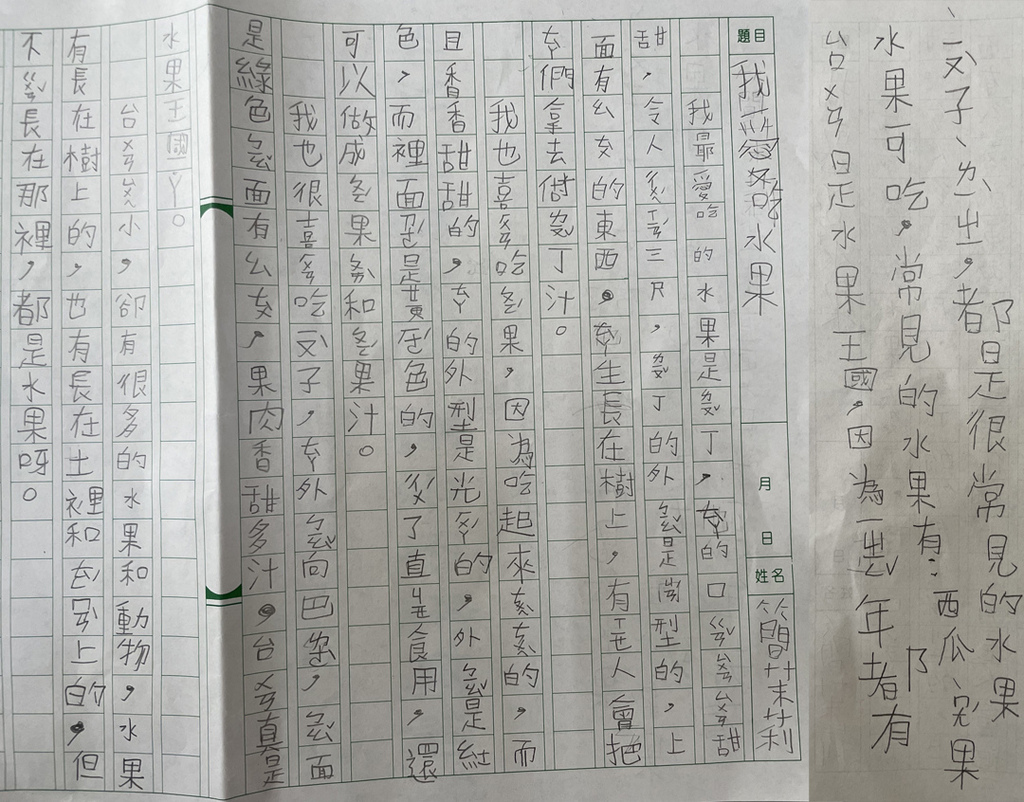 題目 我愛吃水果
月 日 姓名 簡茉莉
我最愛吃的水果是ㄌㄧㄡˇ丁，ㄊㄚ的口ㄍㄢˇㄙㄨㄢㄙㄨㄢ甜
甜，令人ㄔㄨㄟˊㄒㄧㄢˊ三尺，ㄌㄧㄡˇ丁的外是型的，上
面有ㄠㄊㄨˊ的東西。ㄊㄚ生長在樹上，有ㄒㄧㄝ人會把
ㄊㄚ們拿去做ㄌㄧㄡˇ丁汁。
我也喜ㄏㄨㄢ吃ㄇㄤˊ果，因為吃起來的，而
且香香甜甜的，ㄊㄚ的外型是光ㄏㄨㄚˊ的，外是紅
色，而裡面是黃色色的，ㄔㄨˊ了直ㄐㄧㄝ食用，還
可以做成ㄇㄤˊ果和ㄇㄤˊ果汁。
我也很喜ㄏㄨㄢ吃ㄐㄩˊ子，ㄊㄚ外向巴，面
是綠色面有ㄠㄊㄨˊ，果肉香甜多汁。台ㄨㄢ真是
水果王國ㄚ。
台ㄨㄢㄙㄨㄟ小，卻有很多的水果和動物，水果
有長在樹上的，也有長在土裡和上的，但
不ㄍㄨㄢˇ長在那裡，都是水果呀。
台ㄨㄢ是水果王國，因為一ㄓㄥˇ年都有
水果可吃。常見的水果有：西瓜、ㄇㄤˊ果
、ㄐㄩˊ子、ㄌㄧˋㄓ，都是很常見的水果